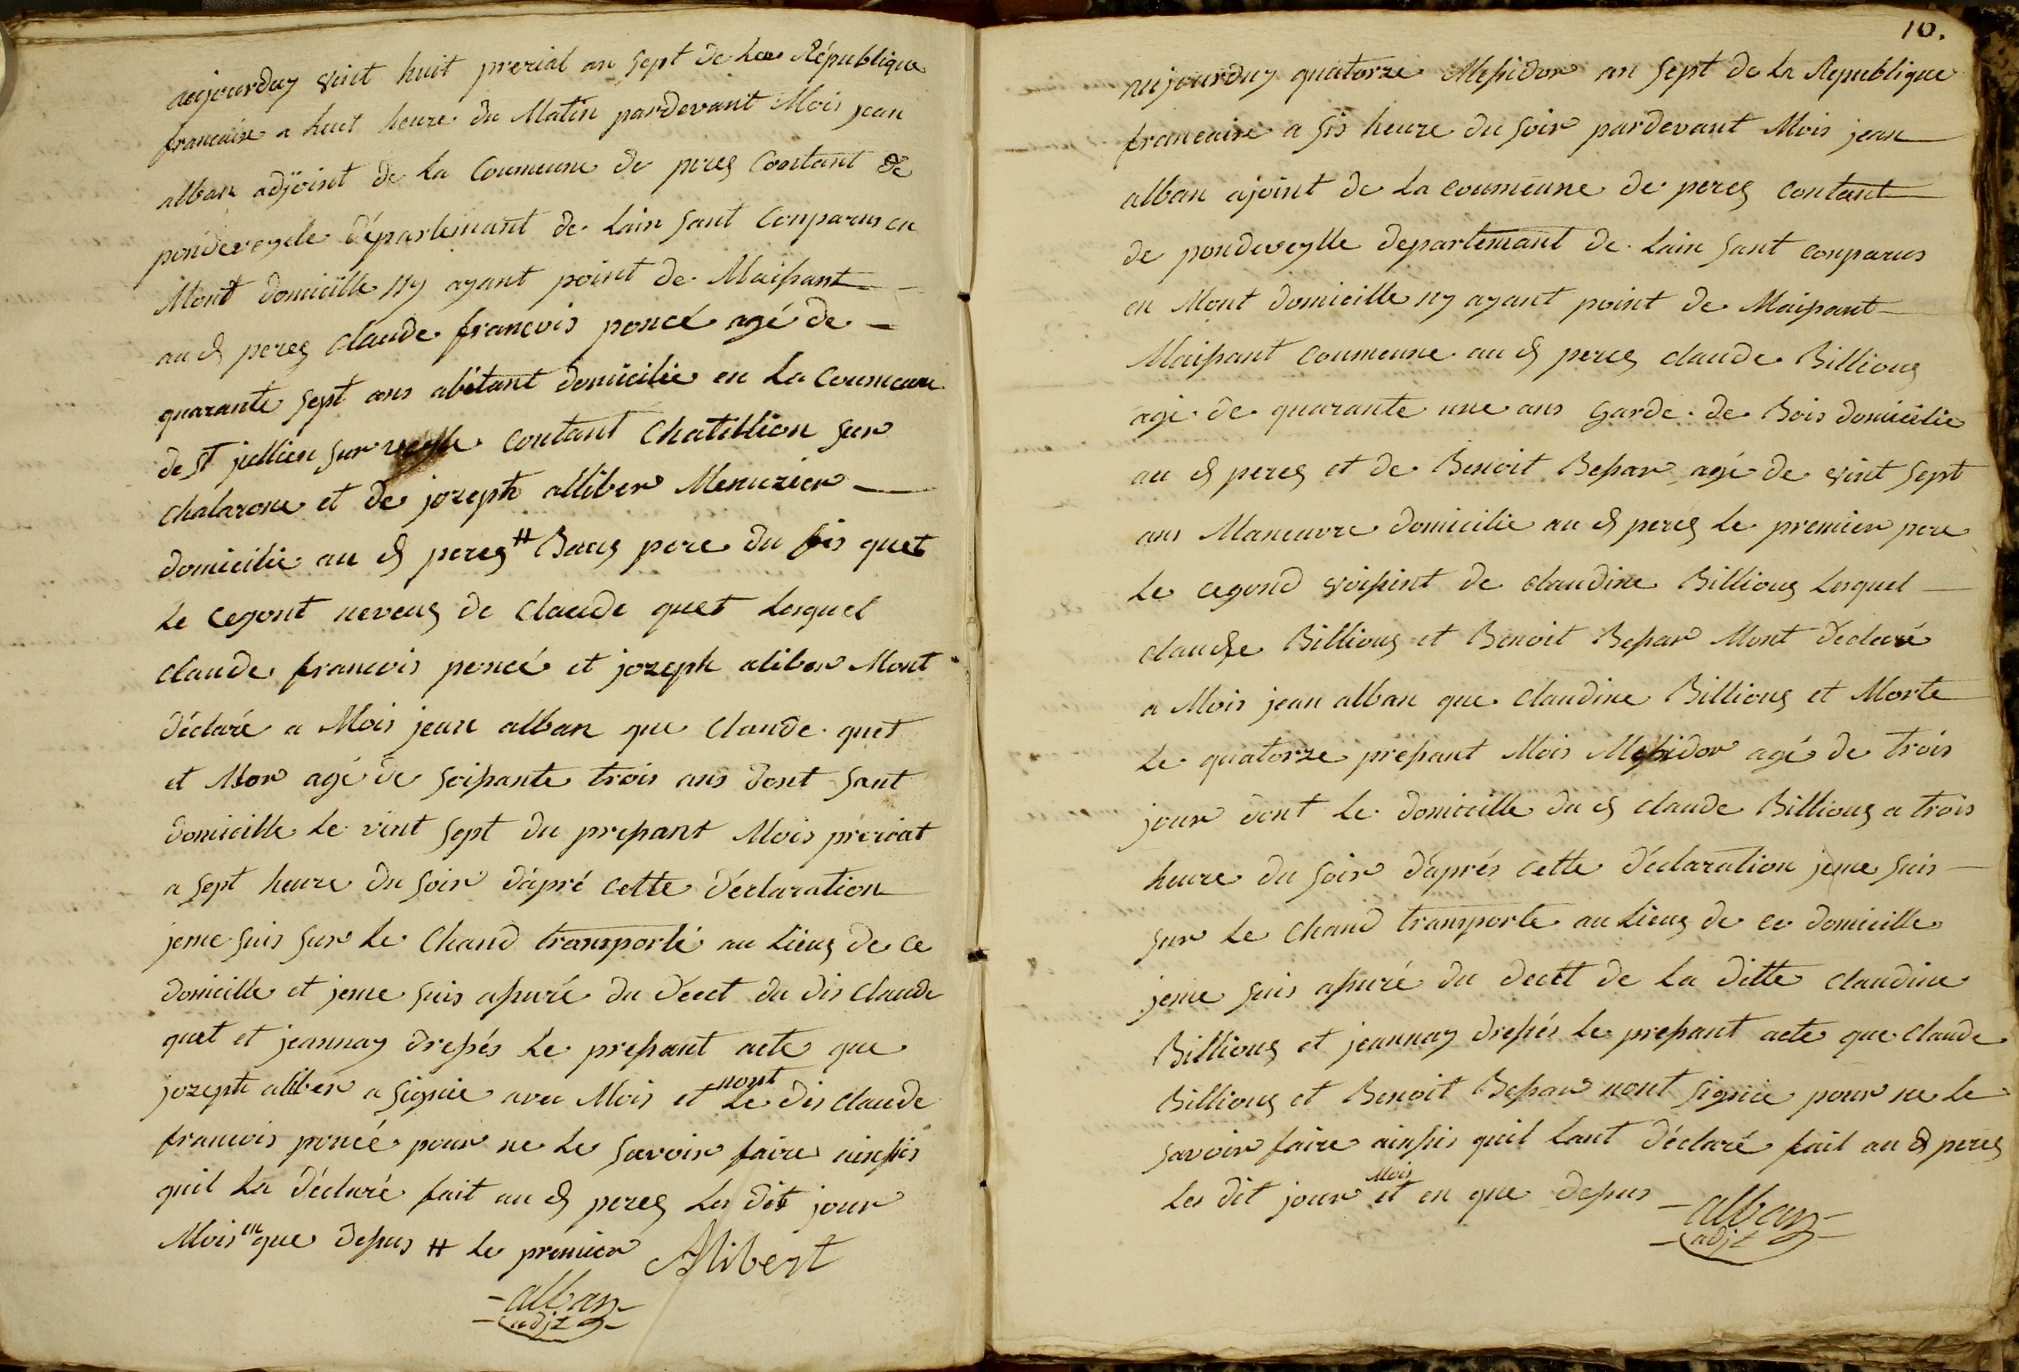 aujourduy vint huit prerial an sept de La République
francaise a huit heure du Matin pardevant Mois jean
alban adjoint de La Coumeune de perex Contant de
pondeveyle départemant de Lain sant Conparus en
Mont domicille ny ayant point de Maisant
au d perex Claude francois poncé agé de
quarante sept ans abitant domicilié en La Coumeune
de st jullien sur veylle contant Chatillion sur
Chalarone et de jozeph alliber Menuzier
domicilié au d perex # Baux pere du fis quet
Le cegont neveux de Claude quet Lesquel
Claude francois poncé et jozeph aliber Mont
déclaré a Mois jean alban que Claude quet
et Mor agé de soisante trois ans dont sant
domicille Le vint sept du presant Mois prerial
a sept heure du soir dapré cette déclaration
jeme suis sur Le Chand transporté au Lieux de ce
domicille et jeme suis asuré du décet du dis Claude
quet et jeannay dressés Le presant acte que
jozeph aliber a signié avec Mois et nont Le dis Claude
francois poncé pour ne Le savoir faire ainssis
quil La déclaré fait au d perex Les dit jour
Mois en que desus # Le premier Alibert
alban
adjt
10.
aujourduy quatorze Messidor an sept de La Republique
francaise a sis heure du soir pardevant Mois jean
alban ajoint de La coumeune de perex contant
de pondeveylle departemant de Lain sant conparus
en Mont domicille ny ayant point de Maisant
Maisant coumeune au d perex claude Billioux
agé de quarante une ans Garde de Bois domicilié
au d perex et de Benoit Bessar agé de vint sept
ans Maneuvre domicilié au d perex Le premier pere
Le cegond voisint de claudine Billioux Lesquel
claude Billioux et Benoit Bessar Mont déclaré
a Mois jean alban que claudine Billioux et Morte
Le quatorze presant Mois Messidor agé de trois
jour dont Le domicille du d claude Billioux a trois
heure du soir daprés cette déclaration jeme suis
sur Le chand transporte au Lieux de ce domicille
jeme suis asuré du decét de La ditte claudine
Billioux et jeannay dressés Le presant acte que claude
Billioux et Benoit Bessar nont signié pour ne Le
savoir faire ainssis quil Lant déclaré fait au d perex
Les dit jour Mois et en que desus
alban
adjt